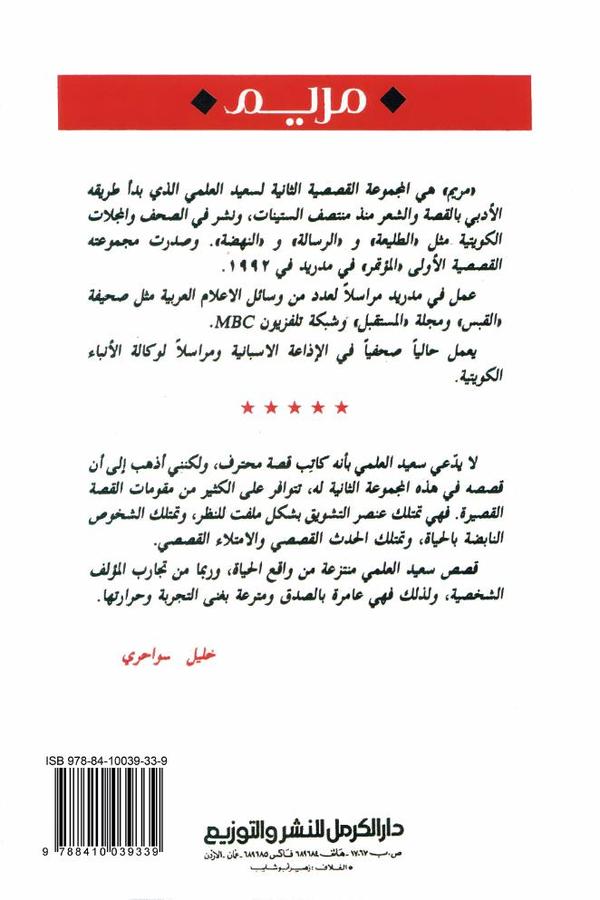 مريم
«مريم» هي المجموعة القصصية الثانية لسعيد العلمي الذي بدأ طريقه
الأدبي بالقصة والشعر منذ منتصف الستينات، ونشر في الصحف والمجلات
الكويتية مثل «الطليعة» و «الرسالة» و «النهضة». وصدرت مجموعته
القصصية الأولى «المؤتمر» في مدريد في ١٩٩٢.
عمل في مدريد مراسلاً لعدد من وسائل الاعلام العربية مثل صحيفة
«القبس» ومجلة «المستقبل» وشبكة تلفزيون MBC.
يعمل حالياً صحفياً في الإذاعة الاسبانية ومراسلاً لوكالة الأنباء
الكويتية.
لا يدّعي سعيد العلمي بأنه كاتِب قصة محترف، ولكنني أذهب إلى أن
قصصه في هذه المجموعة الثانية له، تتوافر على الكثير من مقومات القصة
القصيرة. فهي تمتلك عنصر التشويق بشكل ملفت للنظر، وتمتلك الشخوص
النابضة بالحياة، وتمتلك الحدث القصصي والامتلاء القصصي.
قصص سعيد العلمي منتزعة من واقع الحياة، وربما من تجارب المؤلف
الشخصية، ولذلك فهي عامرة بالصدق ومترعة بغنى التجربة وحرارتها.
خليل سواحري
ISB 978-84-10039-33-9
9 788410 039339
دار الكرمل للنشر والتوزيع
ص.ب ١٧٦٧ - هاتف ٦٨٩٦٨٤ فاكس ٦٨٩٦٨٥ - عمان - الاردن
* الغلاف : زهير أبو شايب